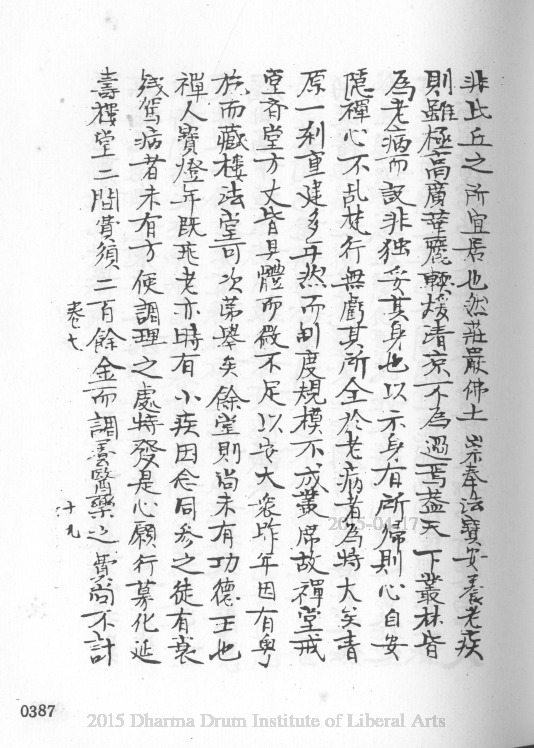 非比丘之所宜居也然莊嚴佛土崇奉法寶安養老疾
則雖極高廣華麗軟煖清涼不為過焉蓋天下叢林皆
為老病而設非独妥其身也以示身有所歸則心自安
隱禪心不乱梵行無虧其所全於老病者為特大矣青
原一刹重建多年然而制度規模不成叢席故禪堂戒
堂斉堂方丈皆具體而微不足以安大衆昨年因有粤
族而藏楼法堂可次苐舉矣餘堂則尚未有功德主也
禅人寶燈年既非老亦時有小疾因念同参之徒有衰
残篤病者未有方便調理之處特發是心願行募化延
壽楼堂二間費須二百餘金而調養醫藥之費尚不計
卷七
十九
2015-04-17
0387
2015 Dharma Drum Institute of Liberal Arts